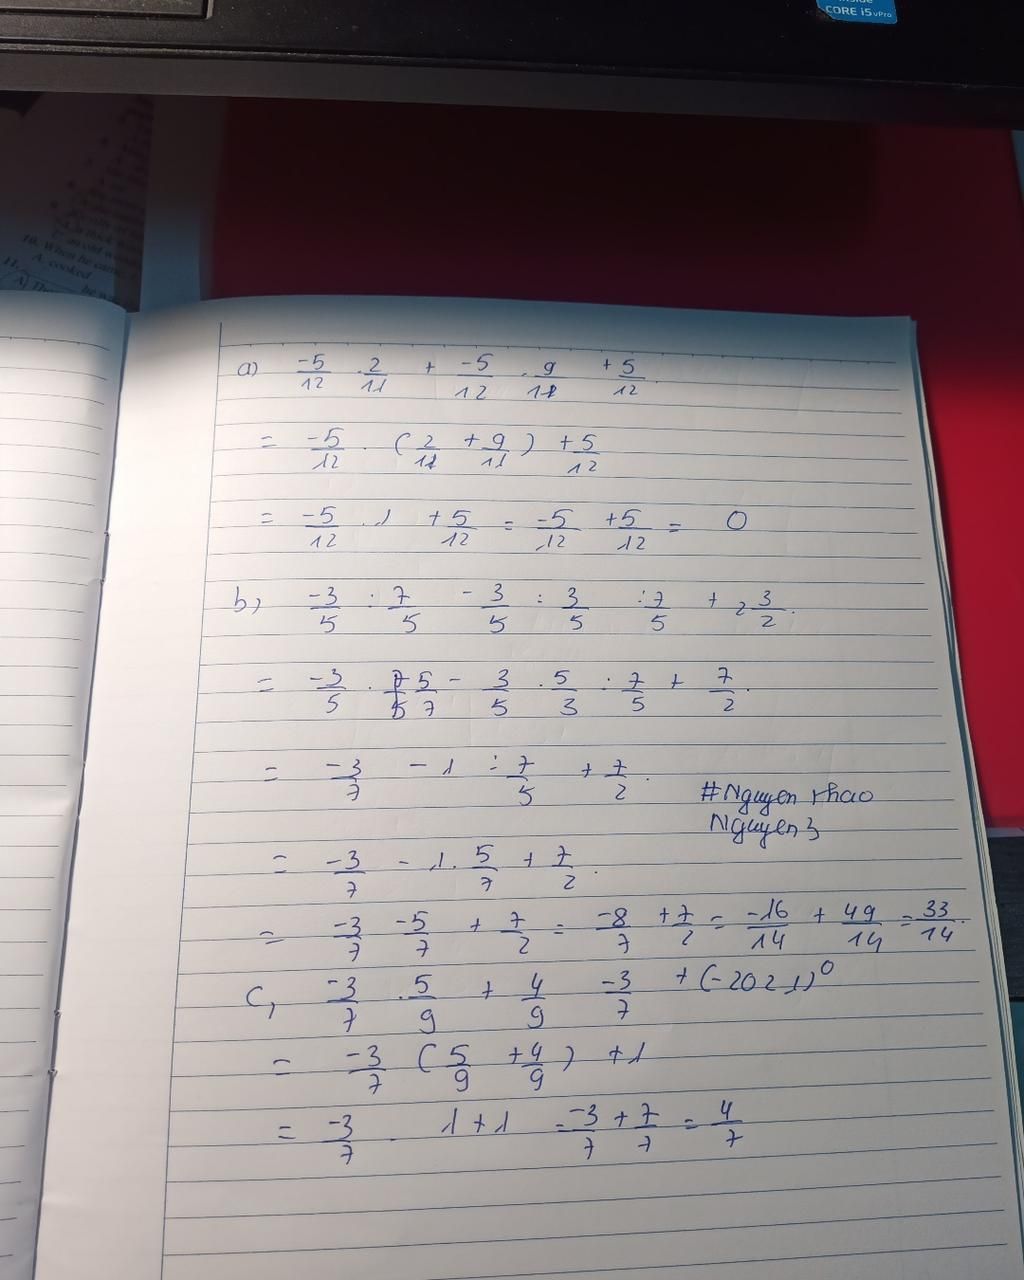 inside
CORE i5 vPro
10. When he came
A. cooked
11.
a) -5/12 . 2/11 + -5/12 . 9/11 + 5/12
= -5/12 . (2/11 + 9/11) + 5/12
= -5/12 . 1 + 5/12 = -5/12 + 5/12 = 0
b, -3/5 : 7/5 - 3/5 : 3/5 : 7/5 + 2 3/2.
= -3/5 . 5/7 - 3/5 . 5/3 : 7/5 + 7/2.
= -3/7 - 1 : 7/5 + 7/2.
#Nguyen thao
Nguyen3
= -3/7 - 1. 5/7 + 7/2.
= -3/7 -5/7 + 7/2 = -8/7 + 7/2 = -16/14 + 49/14 = 33/14.
c, -3/7 . 5/9 + 4/9 -3/7 + (-2021)⁰
= -3/7 (5/9 + 4/9) + 1
= -3/7 . 1 + 1 = -3/7 + 7/7 = 4/7